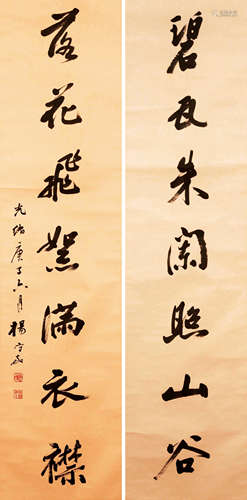 碧瓦朱阑照山谷
落花飞絮满衣襟
光绪庚子六月 杨守敬